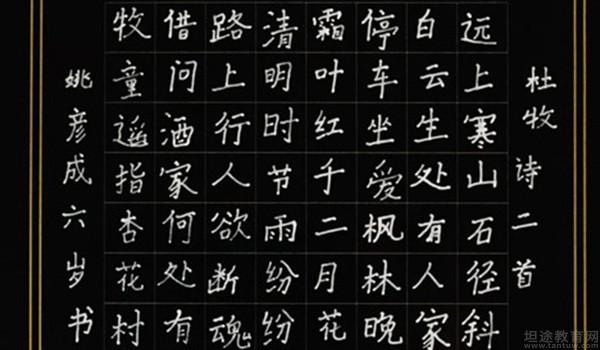 杜牧诗二首
远上寒山石径斜
白云生处有人家
停车坐爱枫林晚
霜叶红千二月花
清明时节雨纷纷
路上行人欲断魂
借问酒家何处有
牧童遥指杏花村
姚彦成六岁书
坦途教育网
www.tantuw.com